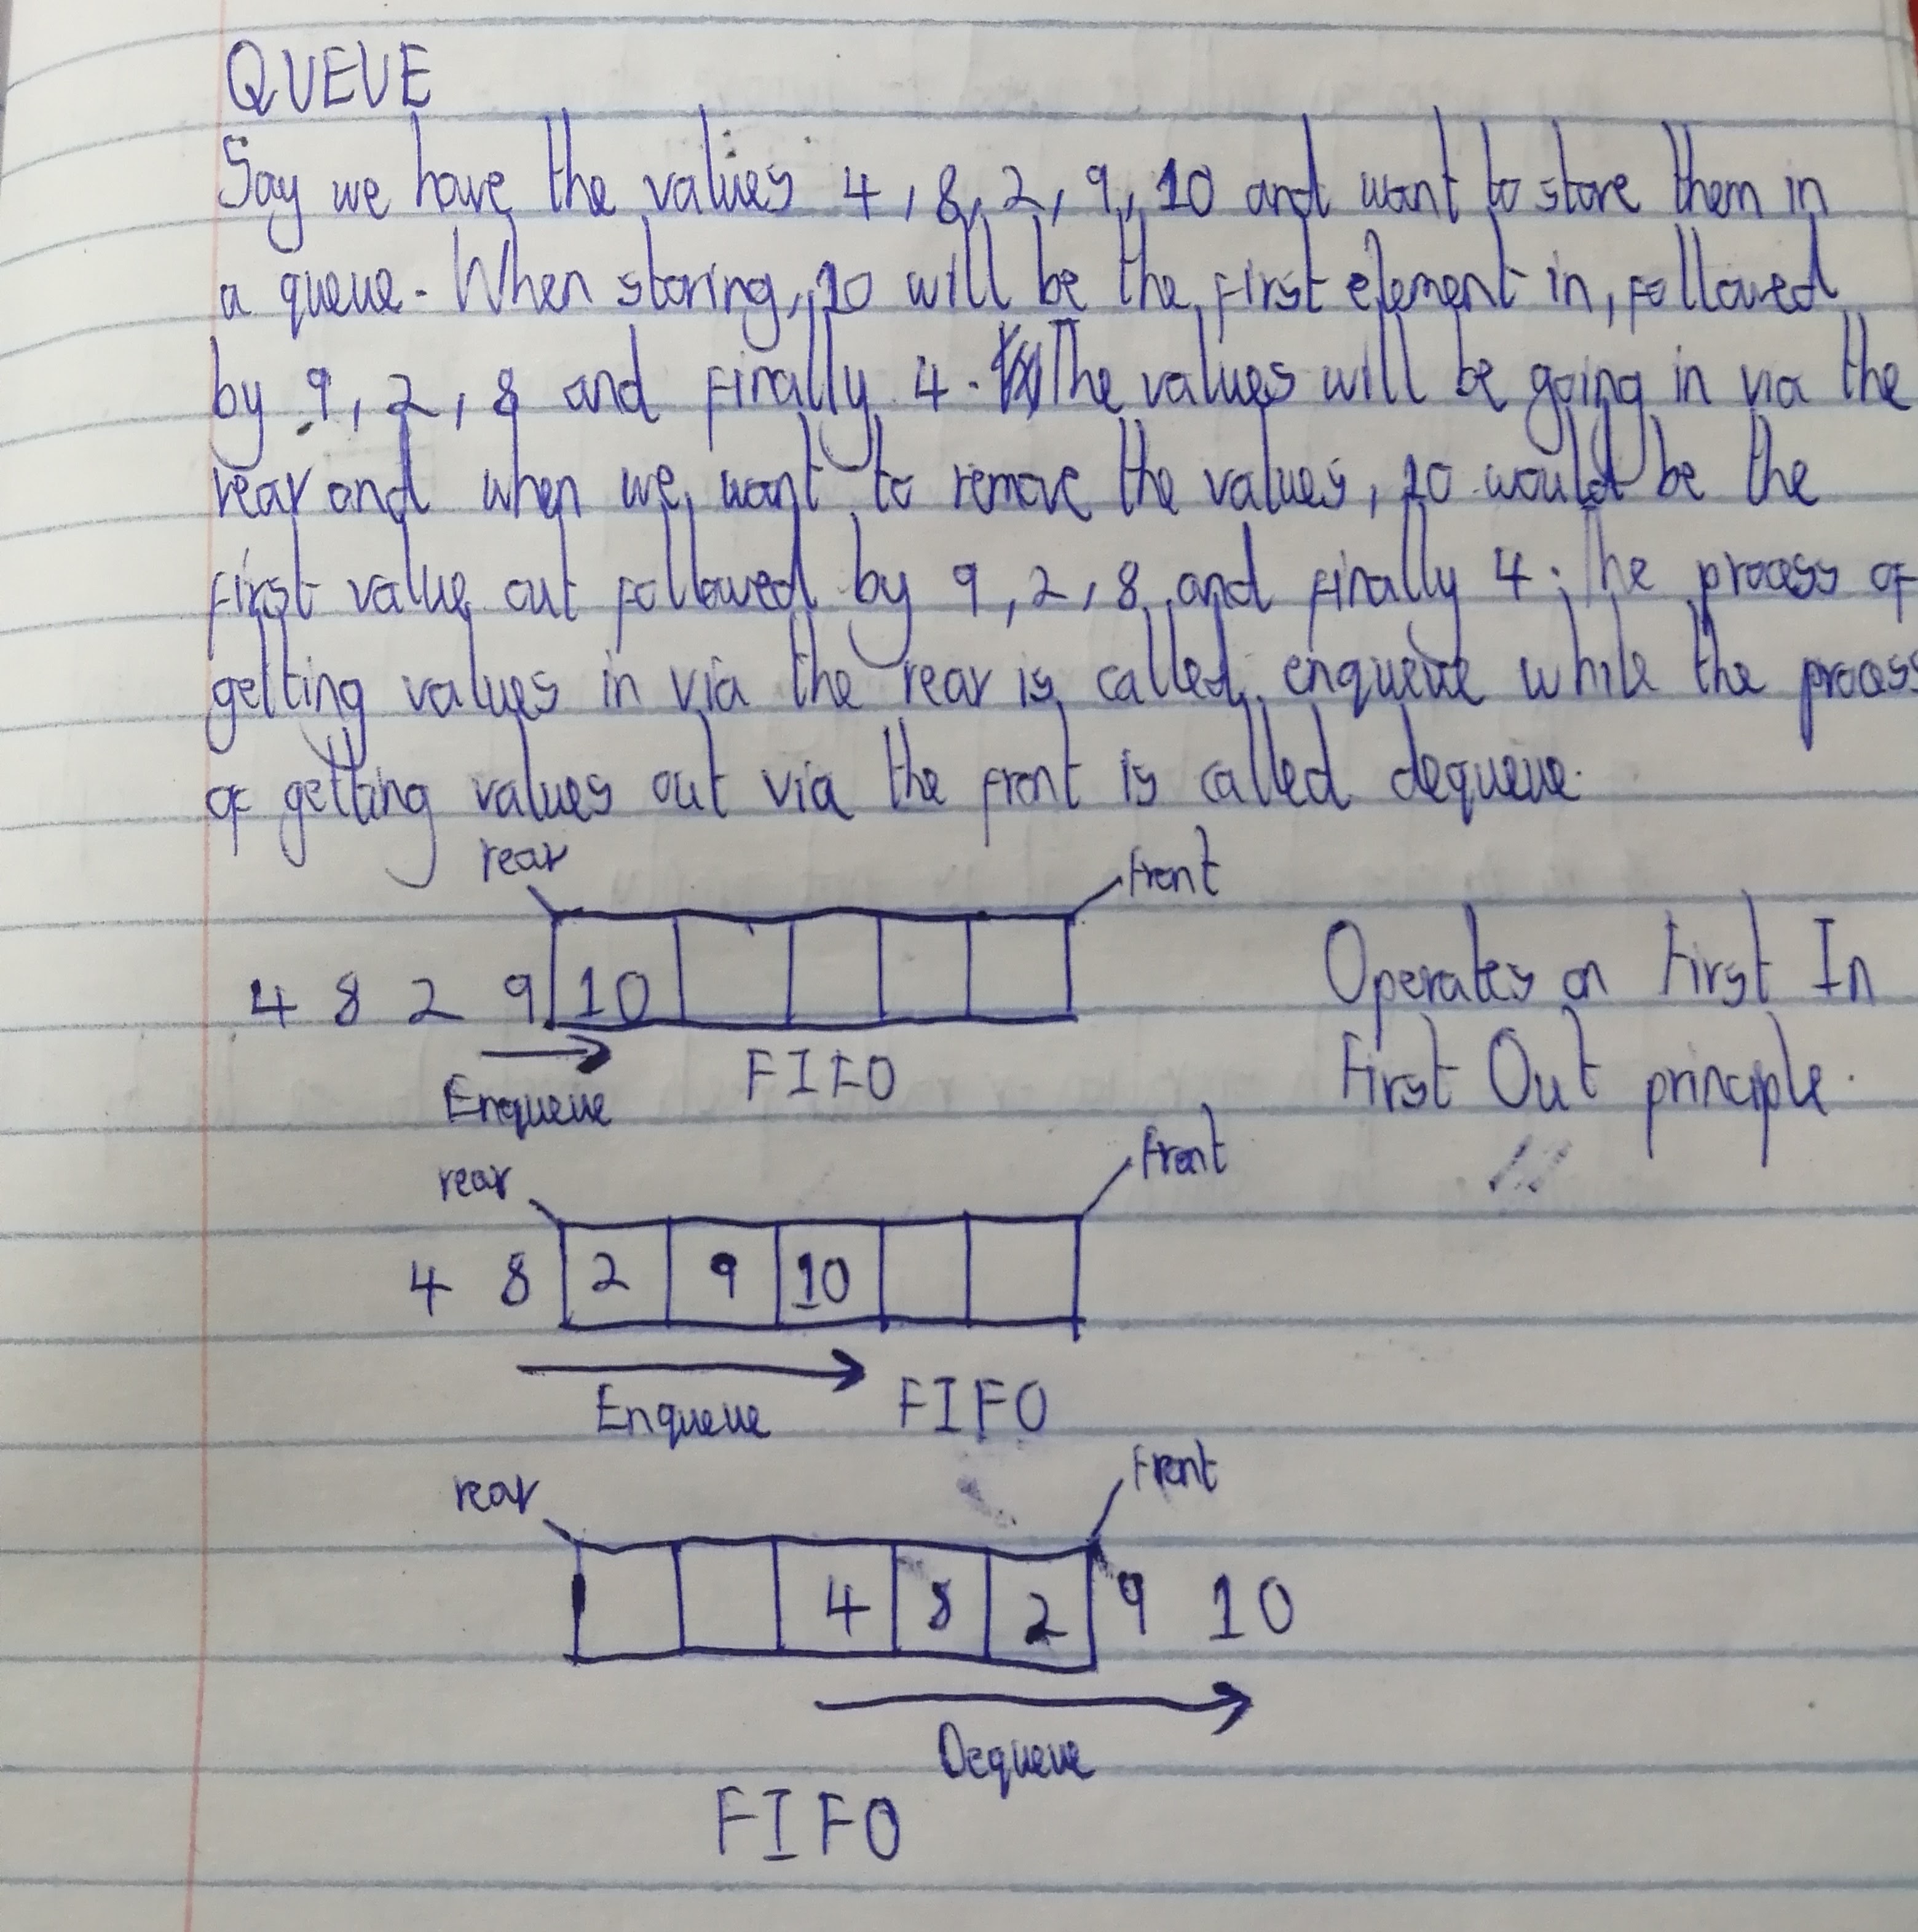 QUEUE
Say we have the values 4, 8, 2, 9, 10 and want to store them in
a queue. When storing, 10 will be the first element in, followed
by 9, 2, 8 and finally 4. The values will be going in via the
rear and when we want to remove the values, 10 would be the
first value out followed by 9, 2, 8 and finally 4. The process of
getting values in via the rear is called enqueue while the process
of getting values out via the front is called dequeue.
rear front
4 8 2 9 10
Operates on First In
First Out principle.
Enqueue FIFO
rear front
4 8 2 9 10
Enqueue FIFO
rear front
4 8 2 9 10
Dequeue
FIFO